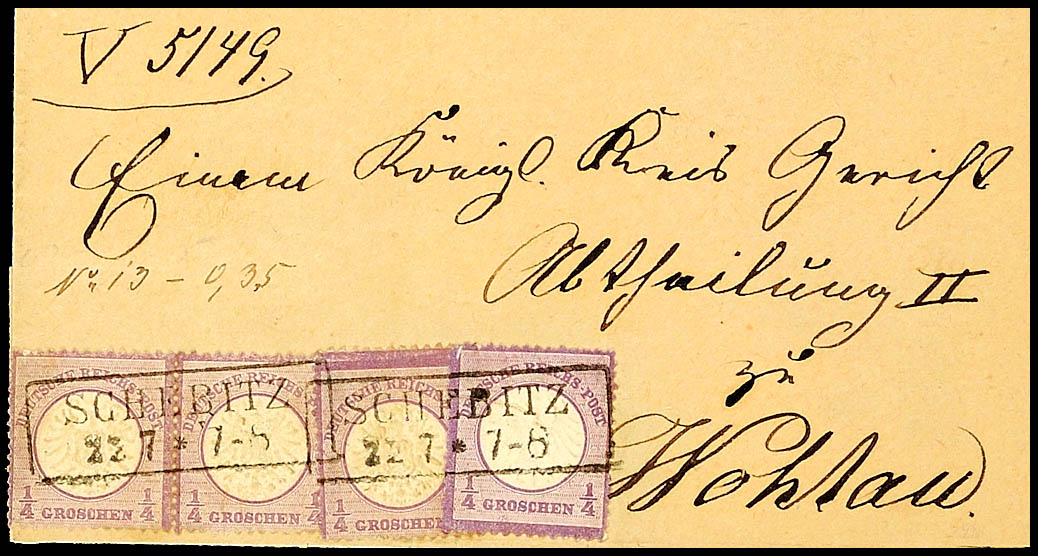 V 5149.
Einem Königl. Kreis Gericht
Abtheilung II
zu
Wohlau.
No. 13 - 0,35
DEUTSCHE REICHS-POST
1/4 GROSCHEN 1/4
DEUTSCHE REICHS-POST
1/4 GROSCHEN 1/4
DEUTSCHE REICHS-POST
1/4 GROSCHEN
DEUTSCHE REICHS-POST
1/4 GROSCHEN 1/4
SCHEBITZ
22 7 * 7-8
SCHEBITZ
22 7 * 7-8